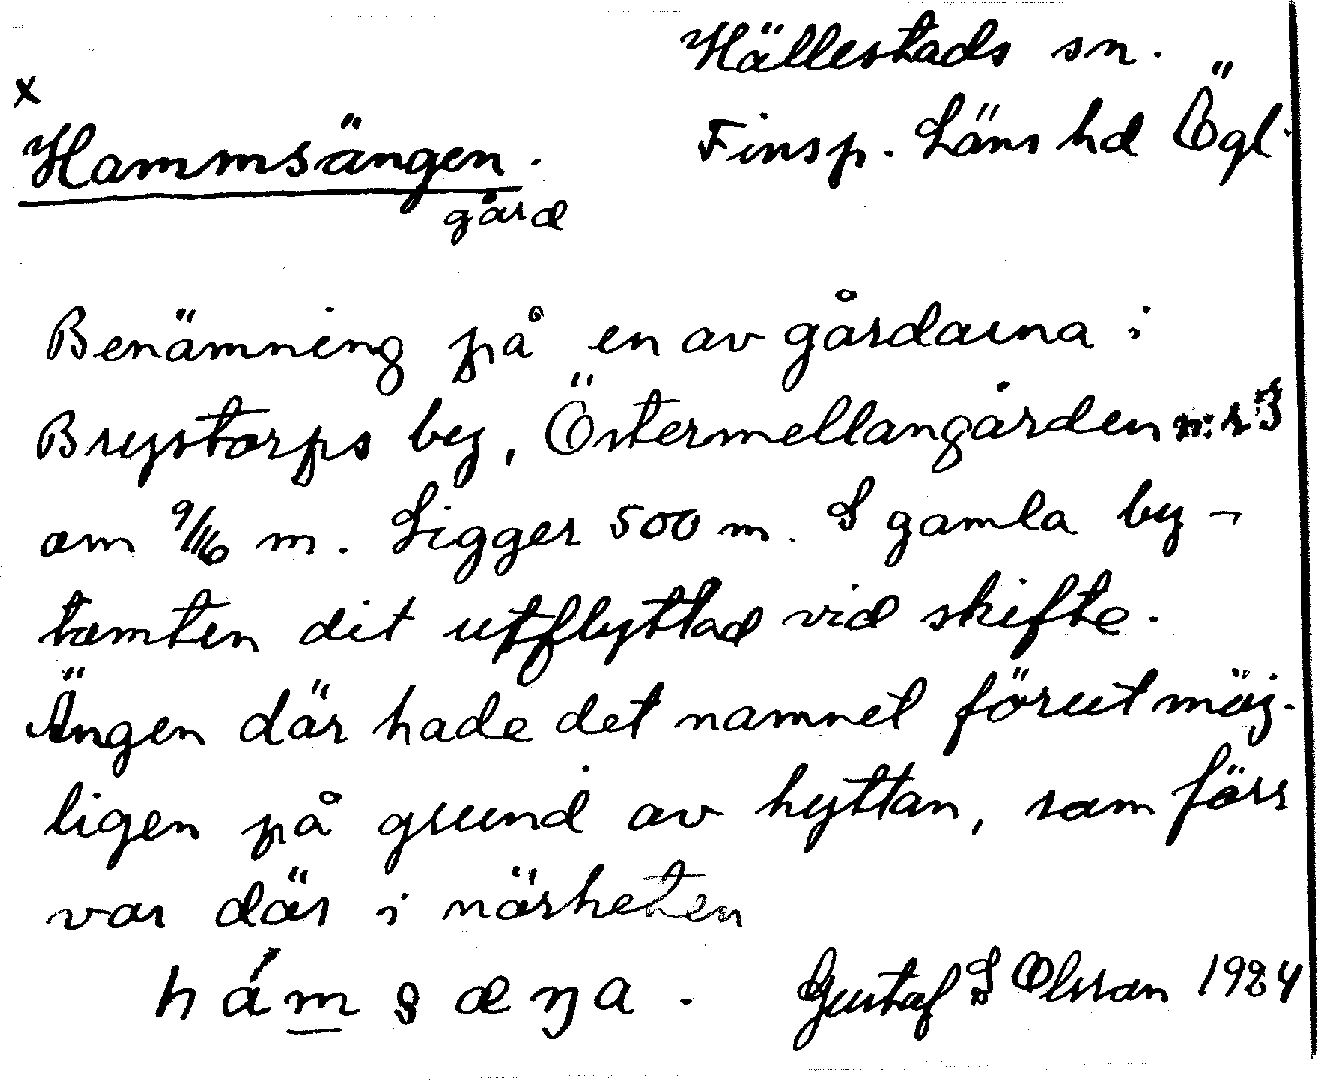 Hällestads sn.
x
Finsp. Läns hd Ögl.
Hammsängen.
gård
Benämning på en av gårdarna i
Brystorps by, Östermellangården n:r 3
om 9/16 m. Ligger 500 m. S gamla by-
tomten dit utflyttad vid skifte.
Ängen där hade det namnet förut möj-
ligen på grund av hyttan, som förr
var där i närheten
hámsæŋa.
Gustaf S Olsson 1924